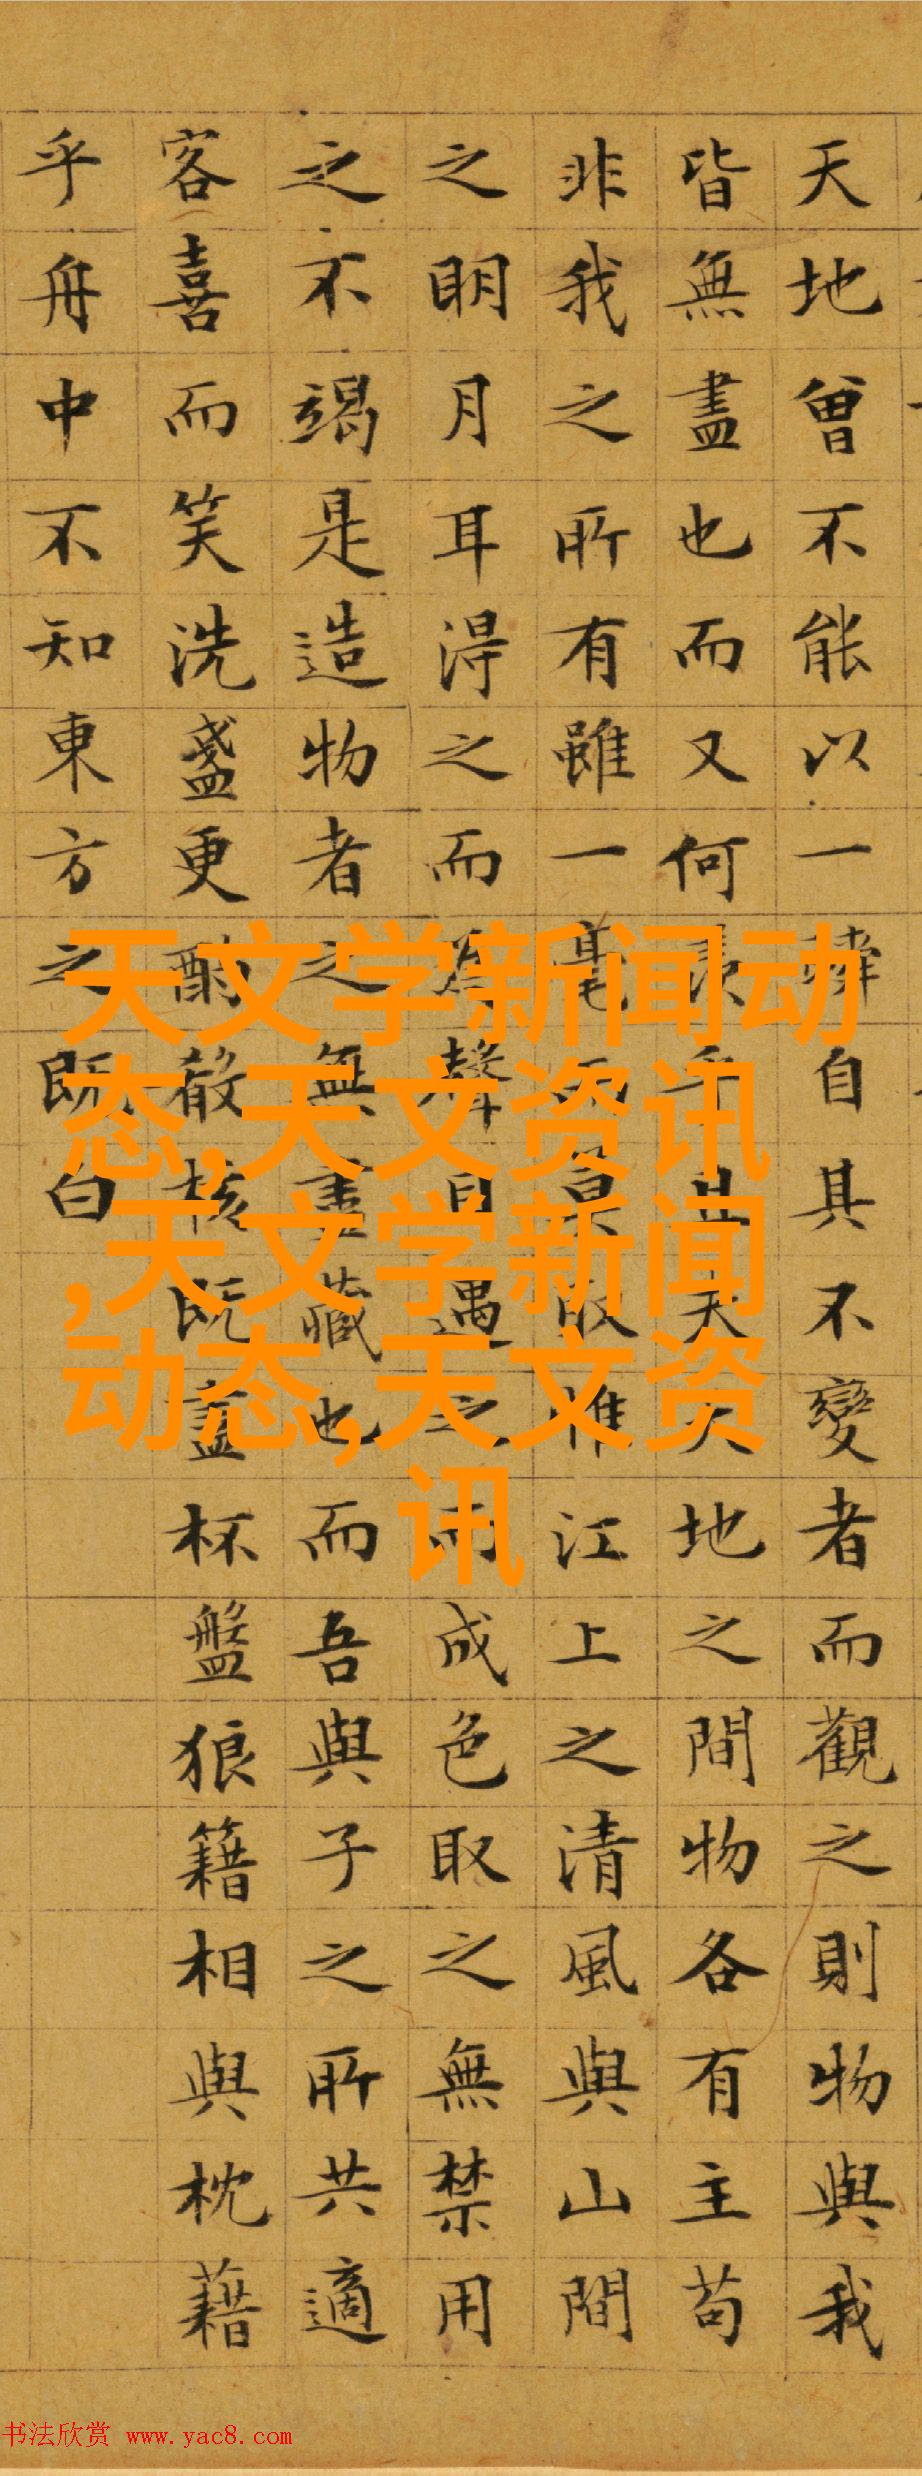 天地曾不能以一瞬自其不變者而觀之則物與我
皆無盡也而又何羨乎且夫天地之間物各有主苟
非我之所有雖一毫而莫取惟江上之清風與山間
之明月耳得之而為聲目遇之而成色取之無禁用
之不竭是造物者之無盡藏也而吾與子之所共適
客喜而笑洗盞更酌殽核既盡杯盤狼籍相與枕藉
乎舟中不知東方之既白
天文学新闻动
态,天文资讯
,天文学新闻
动态,天文资
讯
书法欣赏 www.yac8.com